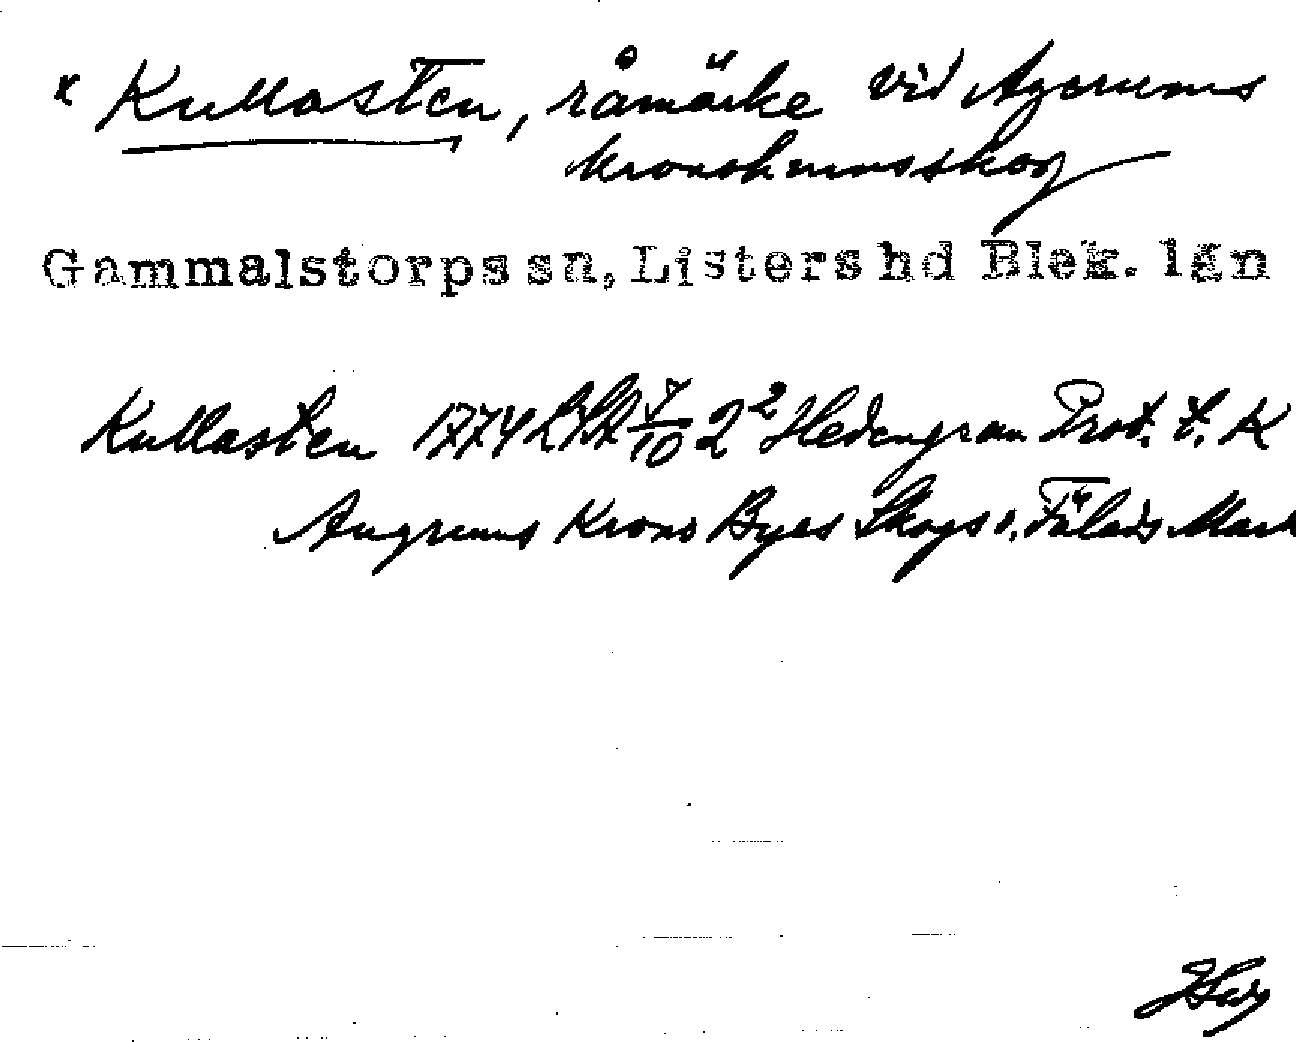 x Kullasten, råmärke vid Agerums
kronohemmsskog
Gammalstorps sn, Listers hd Blek. län
Kullasten 1774 7/10 2² Hedengran Prot. t. K
Augrums Krono Byes Skogs o. Fälads Mark